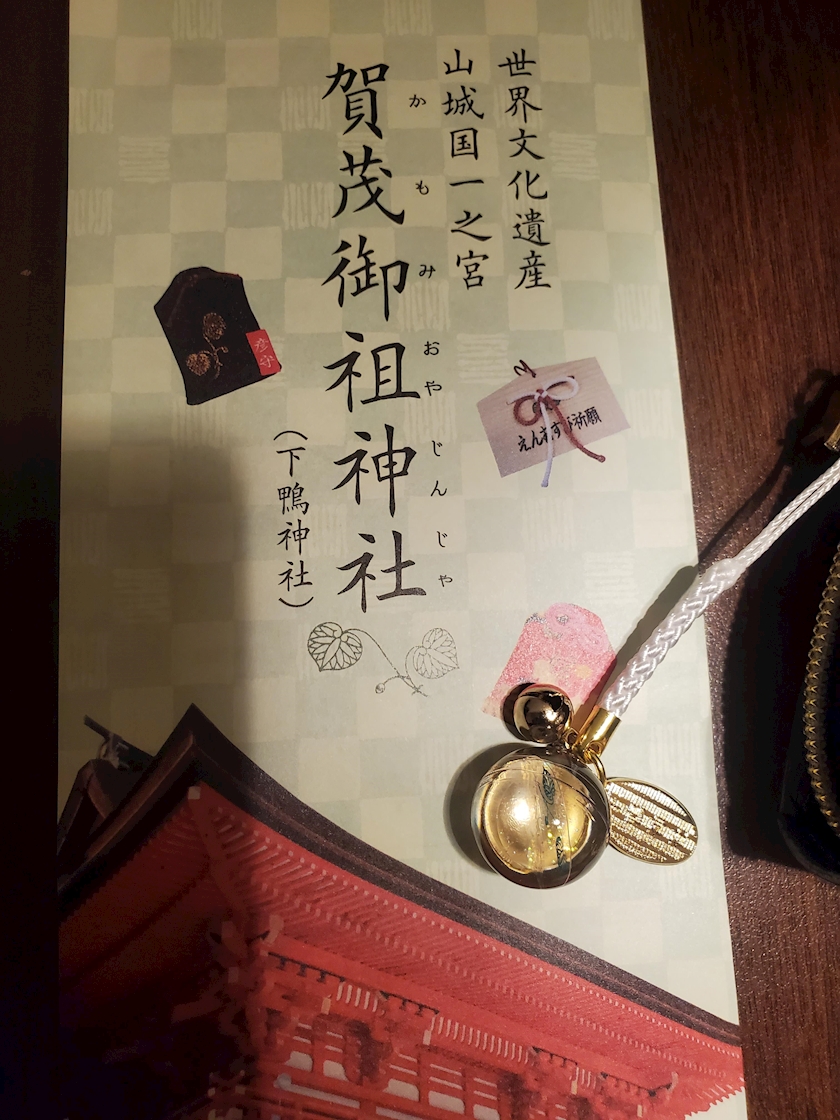 世界文化遺産
山城国一之宮
かもみおやじんじゃ
賀茂御祖神社
（下鴨神社）
えんむすび祈願